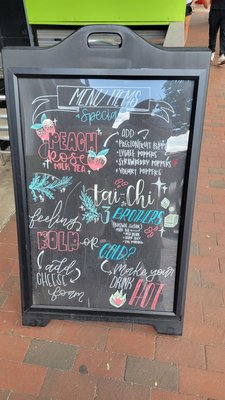 MENU ITEMS
Special
PEACH
Rose
MILK TEA
ADD
PASSIONFRUIT
LYCHEE POPPERS
STRAWBERRY POPPERS
YOGURT POPPERS
tai-chi
3 BROILERS
feeling
KOLD or
COLD?
(add)
CHEESE
foam
make your
DRINK
HOT